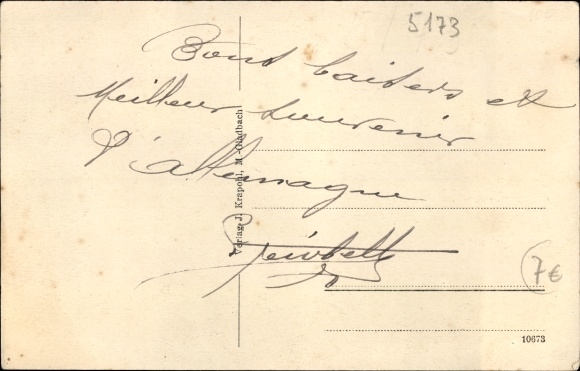 5173
Bons baisers et
Meilleur souvenir
d'allemagne
Verlag J. Krapohl, M.-Gladbach
7€
10673